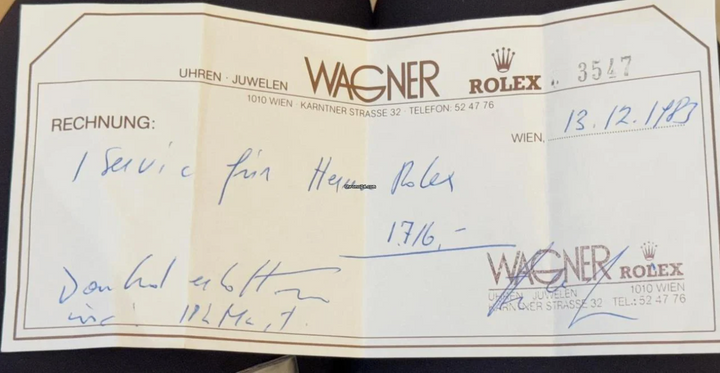 UHREN · JUWELEN WAGNER ROLEX 3547
1010 WIEN · KÄRNTNER STRASSE 32 · TELEFON: 52 47 76
RECHNUNG:
WIEN, 13.12.1983
1 Service für Herren Rolex
1.716,-
Dankend erhalten
inc. Mwst.
WAGNER ROLEX
UHREN · JUWELEN 1010 WIEN
KÄRNTNER STRASSE 32 TEL.: 52 47 76